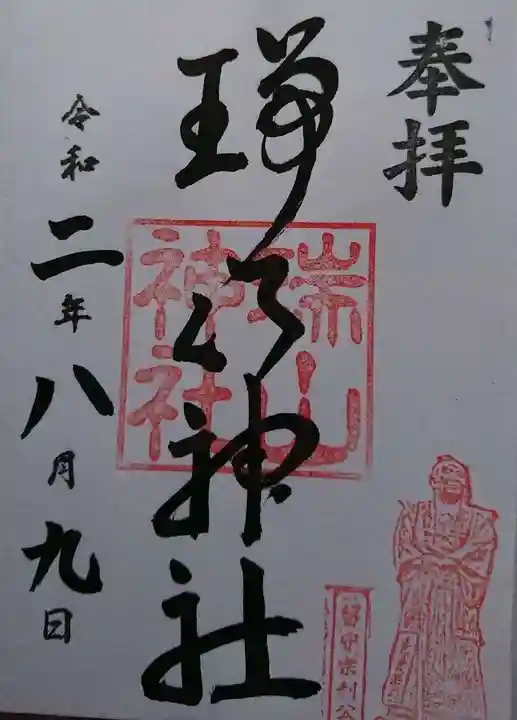 奉拝
瑞山神社
瑞山神社
令和二年八月九日
留守宗利公